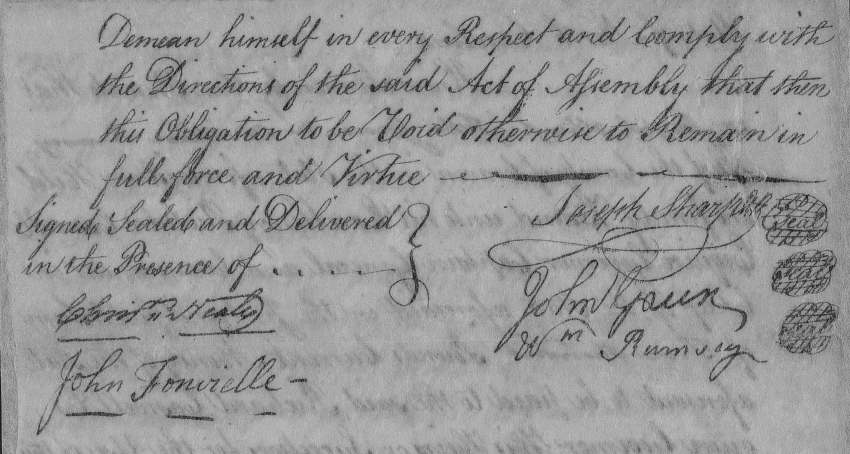 Demean himself in every Respect and Comply with
the Directions of the said Act of Assembly that then
this Obligation to be Void otherwise to Remain in
full force and Virtue
Signed Sealed and Delivered
in the Presence of . . . . .
Joseph Sharp
Seal
John
Seal
Wm Rumsey
Seal
Neale
John Fonvielle